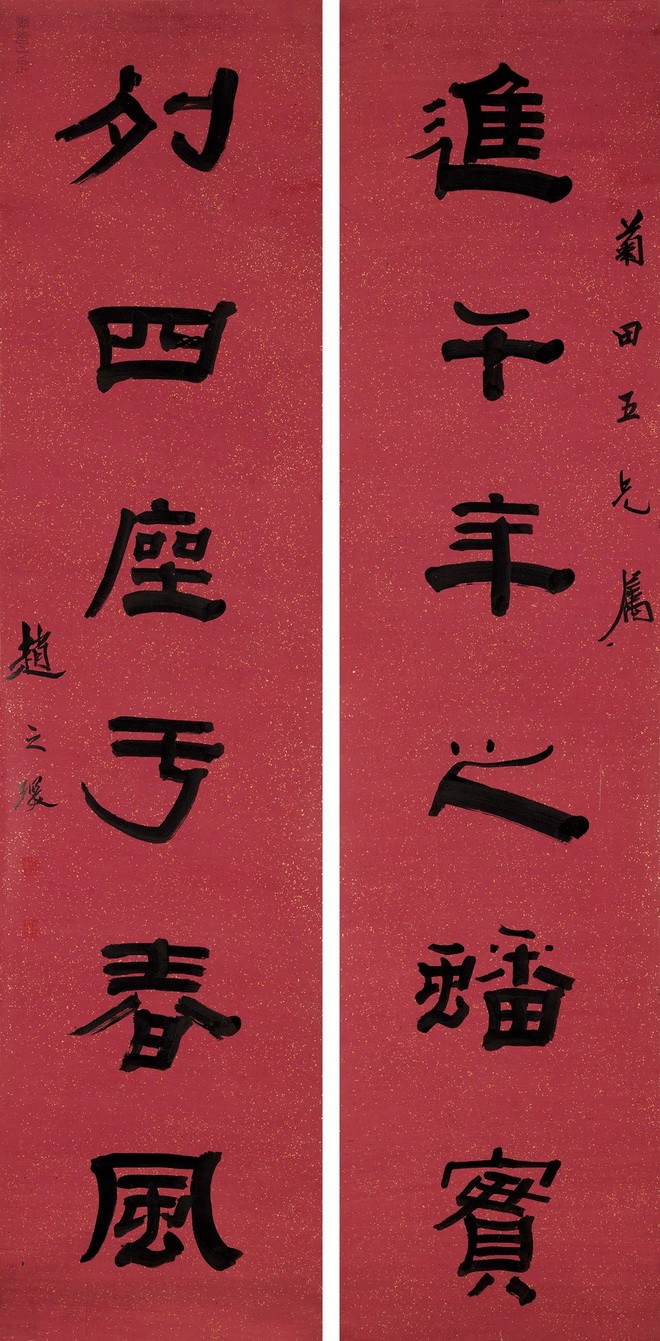 菊田五兄屬
進千年之蟠實
列四座于春風
趙之琛